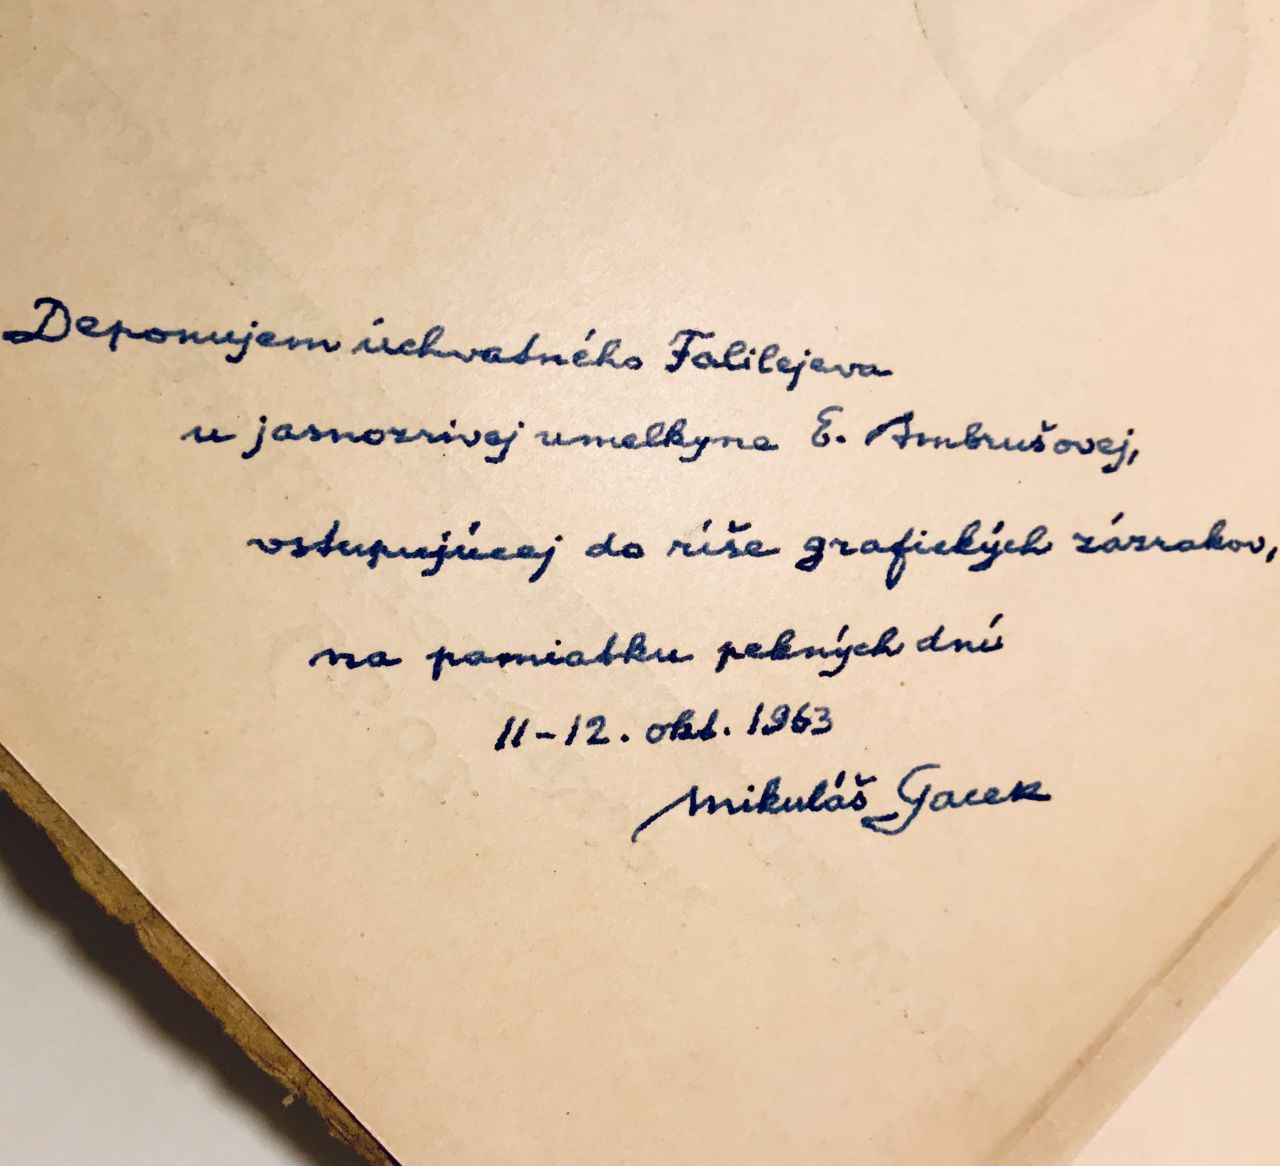 Deponujem úchvatného Falilejeva
u jasnozrivej umelkyne E. Ambrušovej,
vstupujúcej do ríše grafických zázrakov,
na pamiatku pekných dní
11-12. okt. 1963
Mikuláš Gacek